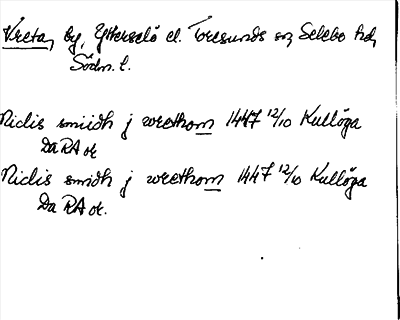 Kreta, by, Ytterselö el. Toresunds sn, Selebo hd,
Södm. l.
Niclis smiidh j wrethom 1447 12/10 Kullöga
Da RA or
Niclis smidh j wrethom 1447 12/10 Kullöga
Da RA or.